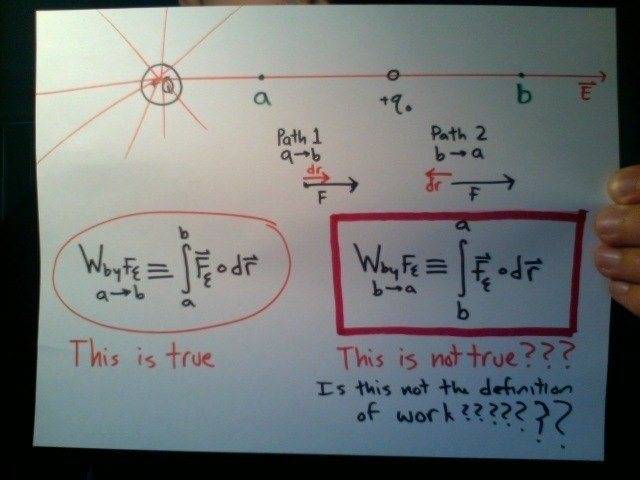 +Q
a
+q₀
b
E⃗
Path 1
a→b
dr
F
Path 2
b→a
dr
F
W by F_E ≡ ∫_a^b F⃗_E ∘ dr⃗
a→b
This is true
W by F_E ≡ ∫_b^a F⃗_E ∘ dr⃗
b→a
This is not true???
Is this not the definition
of work???????